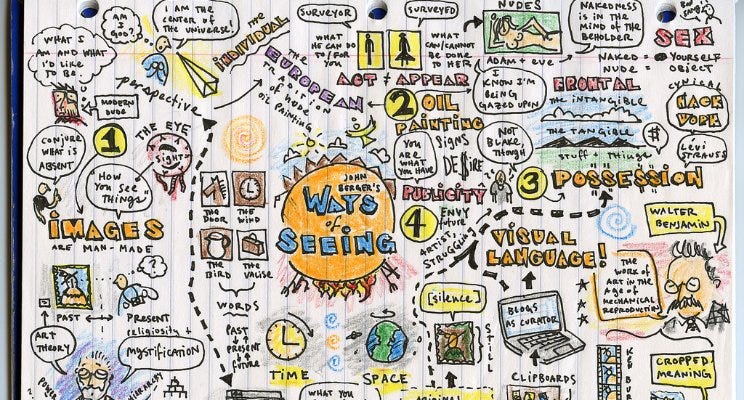 AM I GOD?
I AM THE CENTER OF THE UNIVERSE!
WHAT I AM AND WHAT I'D LIKE TO BE
perspective
THE INDIVIDUAL
THE EUROPEAN
TRADITION OF NUDE
OIL PAINTING
MODERN DUDE
CONJURE WHAT IS ABSENT
1
THE EYE
SIGHT
HOW YOU SEE "THINGS"
IMAGES
ARE MAN-MADE
PAST
PRESENT
?
religiosity +
MYSTIFICATION
ART THEORY
POWER
HIERARCHY
SURVEYOR
SURVEYED
WHAT HE CAN DO TO/FOR YOU
WHAT CAN/CANNOT BE DONE TO HER
ACT ≠ APPEAR
2 OIL PAINTING
NUDES
ADAM + EVE
I KNOW I'M BEING GAZED UPON
NAKEDNESS IS IN THE MIND OF THE BEHOLDER
SEX
NAKED = YOURSELF
NUDE = OBJECT
FRONTAL
THE INTANGIBLE
THE TANGIBLE
STUFF + THINGS
3 POSSESSION
CYNICAL
HACK WORK
LEVI STRAUSS
#
NOT BLAKE, THOUGH
YOU ARE WHAT YOU HAVE
SIGNS
DESIRE
PUBLICITY
4
ENVY
future
ARTIST, STRUGGLING
JOHN BERGER'S
WAYS
of
SEEING
THE DOOR
THE WIND
THE BIRD
THE VALISE
WORDS
PAST
PRESENT
FUTURE
TIME
SPACE
WHAT YOU
VISUAL LANGUAGE!
[silence]
STILL
BLOGS AS CURATOR
CLIPBOARDS
ORIGINAL
WALTER BENJAMIN
THE WORK OF ART IN THE AGE OF MECHANICAL REPRODUCTION
KEN BUR
CROPPED MEANING